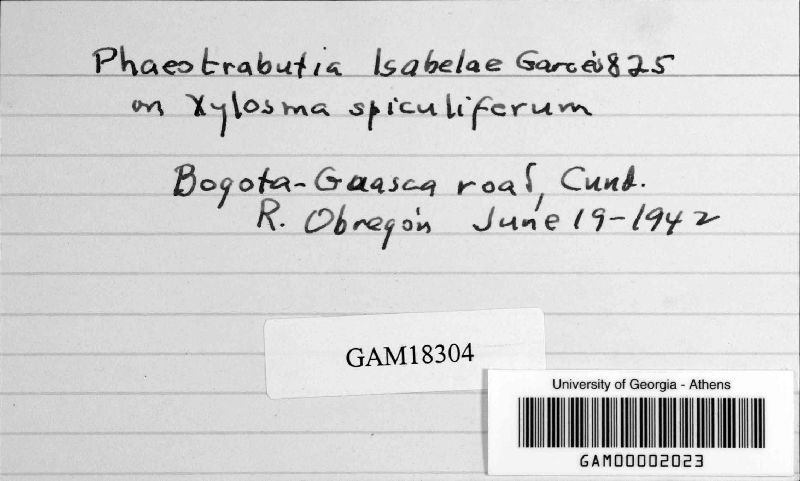 Phaeotrabutia Isabelae Garcés 825
on Xylosma spiculiferum
Bogota-Guasca road, Cund.
R. Obregón June 19-1942
GAM18304
University of Georgia - Athens
GAM00002023